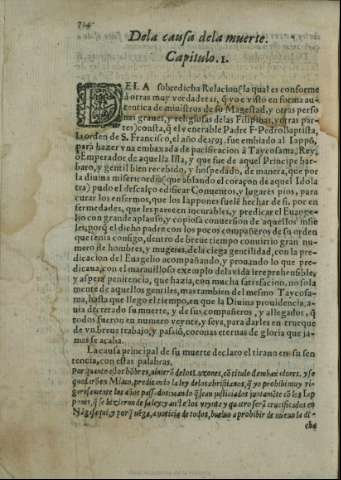 De la causa de la muerte.
Capitulo. I.
DE LA sobredicha Relacion, la qual es conforme
a otras muy verdaderas, q̃ yo e visto en forma au-
tentica de ministros de su Magestad, y otras perso
nas graues, y religiosas de las Filipinas, y otras par-
tes) consta, q̃ el venerable Padre F. Pedro Baptista,
la orden de S. Francisco, el año de 1593. fue embiado al Iappõ,
para hazer vna embaxada de pacificacion à Taycosama, Rey,
o Emperador de aquella Isla, y que fue de aquel Principe bar-
baro, y gentil bien recebido, y hospedado, de manera, que por
la diuina misericordia (que ablando el coraçon de aquel Idola
tra) pudo el descalço edificar Conuentos, y lugares pios, para
curar los enfermos, que los Iappones suelẽ hechar de si, por en
fermedades, que les parecen incurables, y predicar el Euange-
lio con grande aplauso, y copiosa conuersion de aquellos infie
les, porq̃ el dicho padre con los pocos compañeros de su orden
que tenia consigo, dentro de breue tiempo conuirtio gran nu-
mero de hombres, y mugeres, de la ciega gentilidad, con la pre-
dicacion del Euãgelio acompañando, y prouando lo que pre-
dicaua, con el marauilloso exemplo de la vida irreprehensible,
y aspera penitencia, que hazia, con mucha satisfacion, no sola
mente de aquellos gentiles, mas tambien del mesmo Tayco-
sama, hasta que llego el tiempo, en que la Diuina prouidencia, a-
uia decretado su muerte, y de sus compañeros, y allegados, q̃
todos fueron en numero veynte, y seys, para darles en trueque
de vn breue trabajo, y passiõ, coronas eternas de gloria que ja-
mas se acaba.
La causa principal de su muerte declaro el tirano en su sen
tencia, con estas palabras.
Por quanto estos hõbres, vinierõ de los Luzones, cõ titulo de embaxadores, y se
quedarõ en Miaco, predicando la ley de los christianos, q̃ yo prohibi muy ri-
gurosamente los años passados: mando q̃ sean justiciados juntamẽte cõ los Iap-
pones, q̃ se hizieron de su ley: y assi estos veynte y quatro serã crucificados en
Nãgasaqui, y porq̃ venga, a noticia de todos, bueluo a prohibir de nueuo la di-
cha